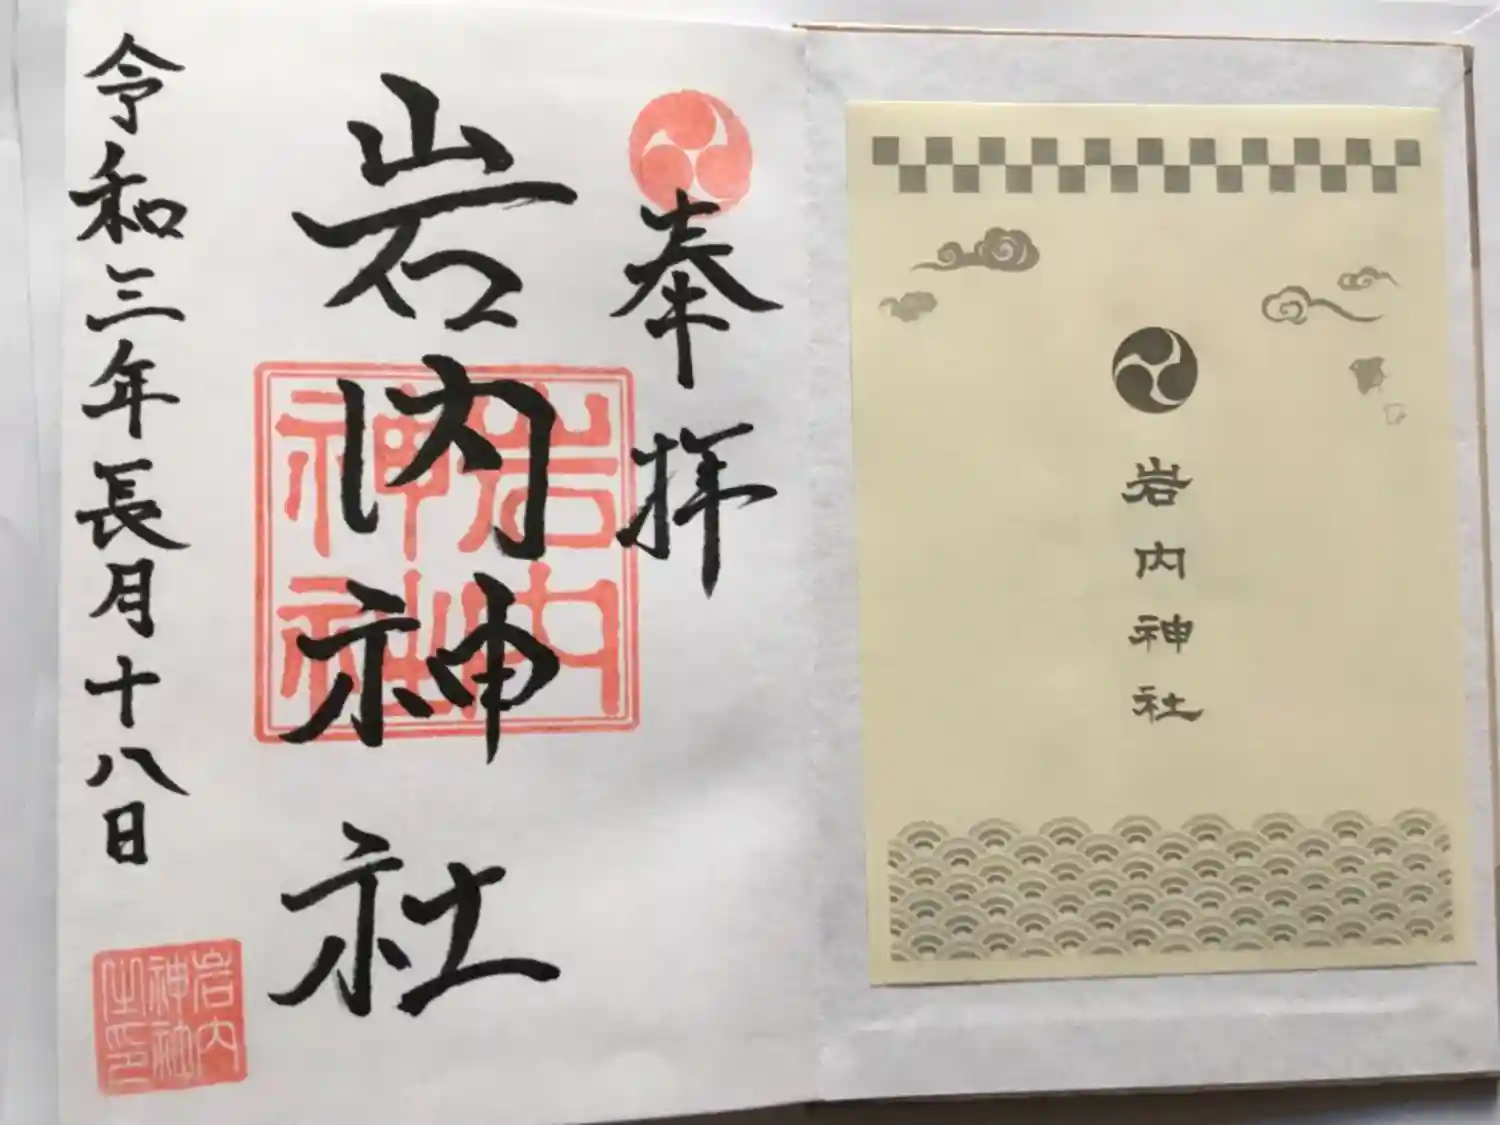 奉拝
岩内神社
岩内神社
令和三年長月十八日
岩内神社之印
岩内神社